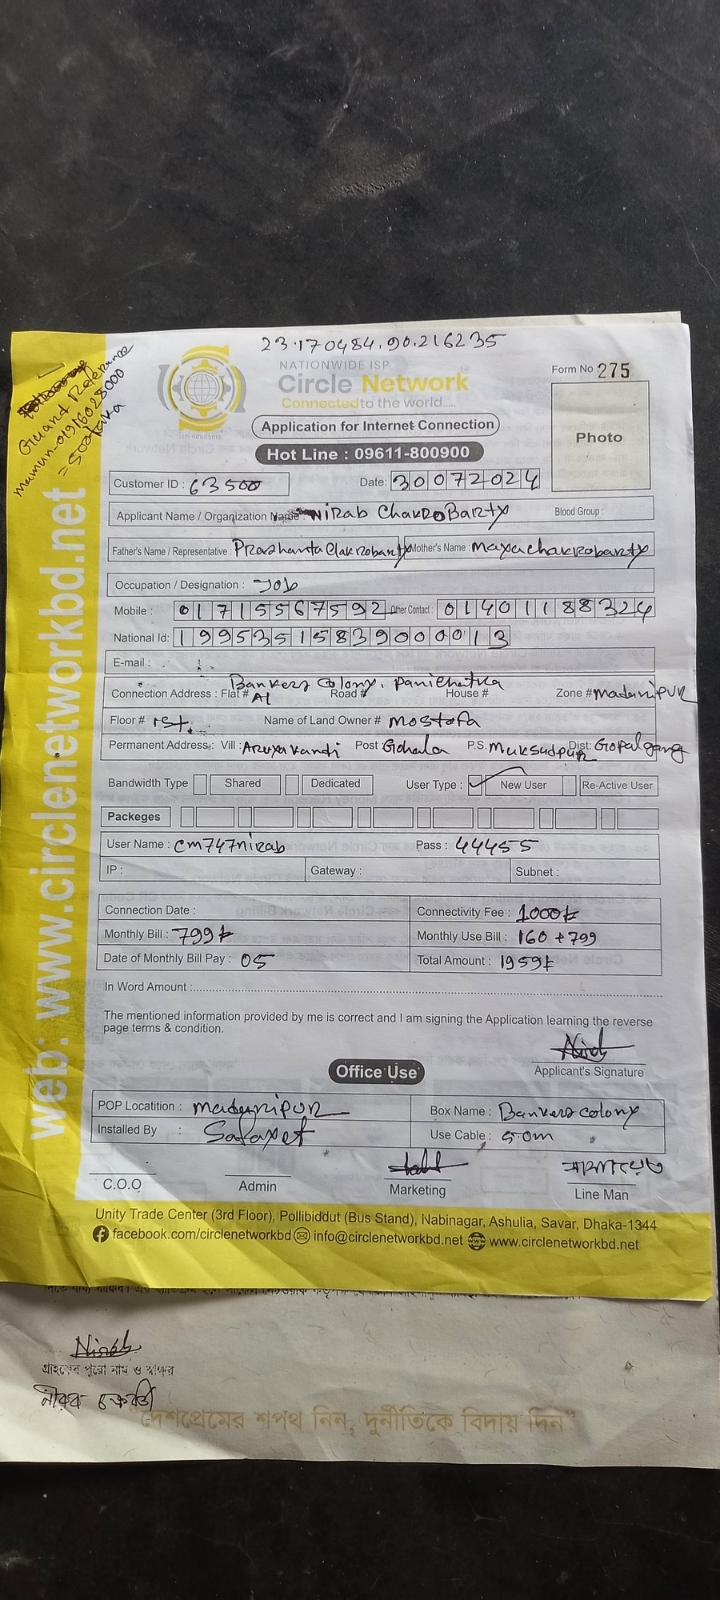 23.170484.90.216235
NATIONWIDE ISP
Circle Network
Connected to the world.....
Form No 275
Application for Internet Connection
Hot Line : 09611-800900
Photo
Guand Reference
mamun-01916028000
= 500 taka
web: www.circlenetworkbd.net
Customer ID : 63500 Date: 30072024
Applicant Name / Organization Name : Nirab ChakroBarty Blood Group :
Father's Name / Representative : Prashanta Clakrobarty Mother's Name : Mayachakrobarty
Occupation / Designation : Job
Mobile : 01715567592 Other Contact : 01401188324
National Id: 19953515839000013
E-mail :
Bankers Colony, Panichatra
Connection Address : Flat # A1 Road # House # Zone # Madaripur
Floor # 1st. Name of Land Owner # Mostofa
Permanent Address: Vill : Aruyakandi Post Gohala P.S. Muksudpur Dist: Gopalgang
Bandwidth Type Shared Dedicated User Type : ✓ New User Re-Active User
Packeges
User Name : cm747nirab Pass : 44455
IP : Gateway : Subnet :
Connection Date : Connectivity Fee : 1000৳
Monthly Bill : 799৳ Monthly Use Bill : 160 + 799
Date of Monthly Bill Pay : 05 Total Amount : 1959৳
In Word Amount :
The mentioned information provided by me is correct and I am signing the Application learning the reverse
page terms & condition.
Applicant's Signature
Office Use
POP Locatition : Madaripur Box Name : Bankers colony
Installed By : Safayet Use Cable : 50m
সাফায়েত
C.O.O Admin Marketing Line Man
Unity Trade Center (3rd Floor), Pollibiddut (Bus Stand), Nabinagar, Ashulia, Savar, Dhaka-1344
facebook.com/circlenetworkbd info@circlenetworkbd.net www.circlenetworkbd.net
Nirab
গ্রাহকের পুরো নাম ও স্বাক্ষর
নীরব চক্রবর্তী
"দেশপ্রেমের শপথ নিন, দুর্নীতিকে বিদায় দিন"